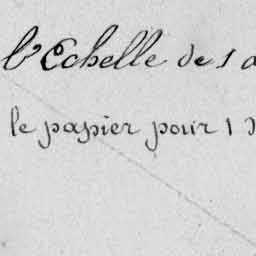 l'Echelle de 1 a
le papier pour 1